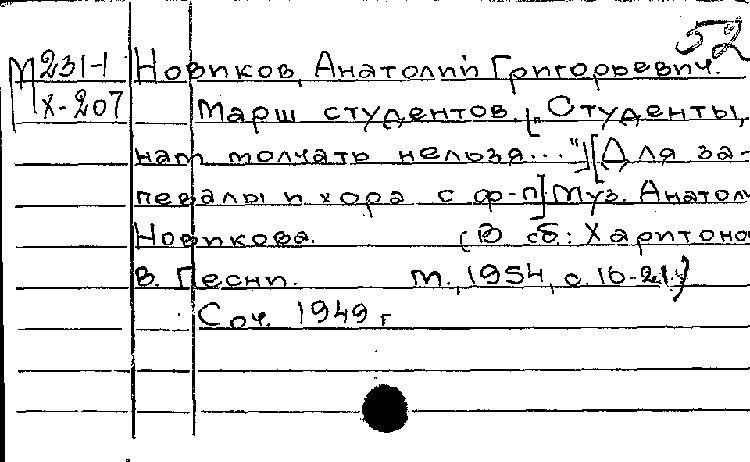 52
М 231-1
X-207
Новиков, Анатолий Григорьевич.
Марш студентов. ["Студенты,
нам молчать нельзя..."] [Для за-
певалы и хора с ф-п] Муз. Анатол
Новикова. (В сб: Харитоно
В. Песни. М., 1954, с. 16-21.)
Соч. 1949 г